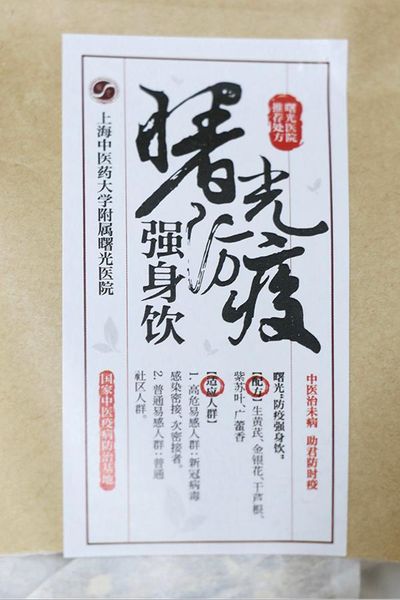 曙光医院
推荐处方
曙光防疫
强身饮
上海中医药大学附属曙光医院
中医治未病 助君防时疫
曙光“防疫强身饮”
【配方】生黄芪、金银花、干芦根、
紫苏叶、广藿香
【适应人群】
1. 高危易感人群：新冠病毒
感染密接、次密接者。
2. 普通易感人群：普通
社区人群。
国家中医疫病防治基地